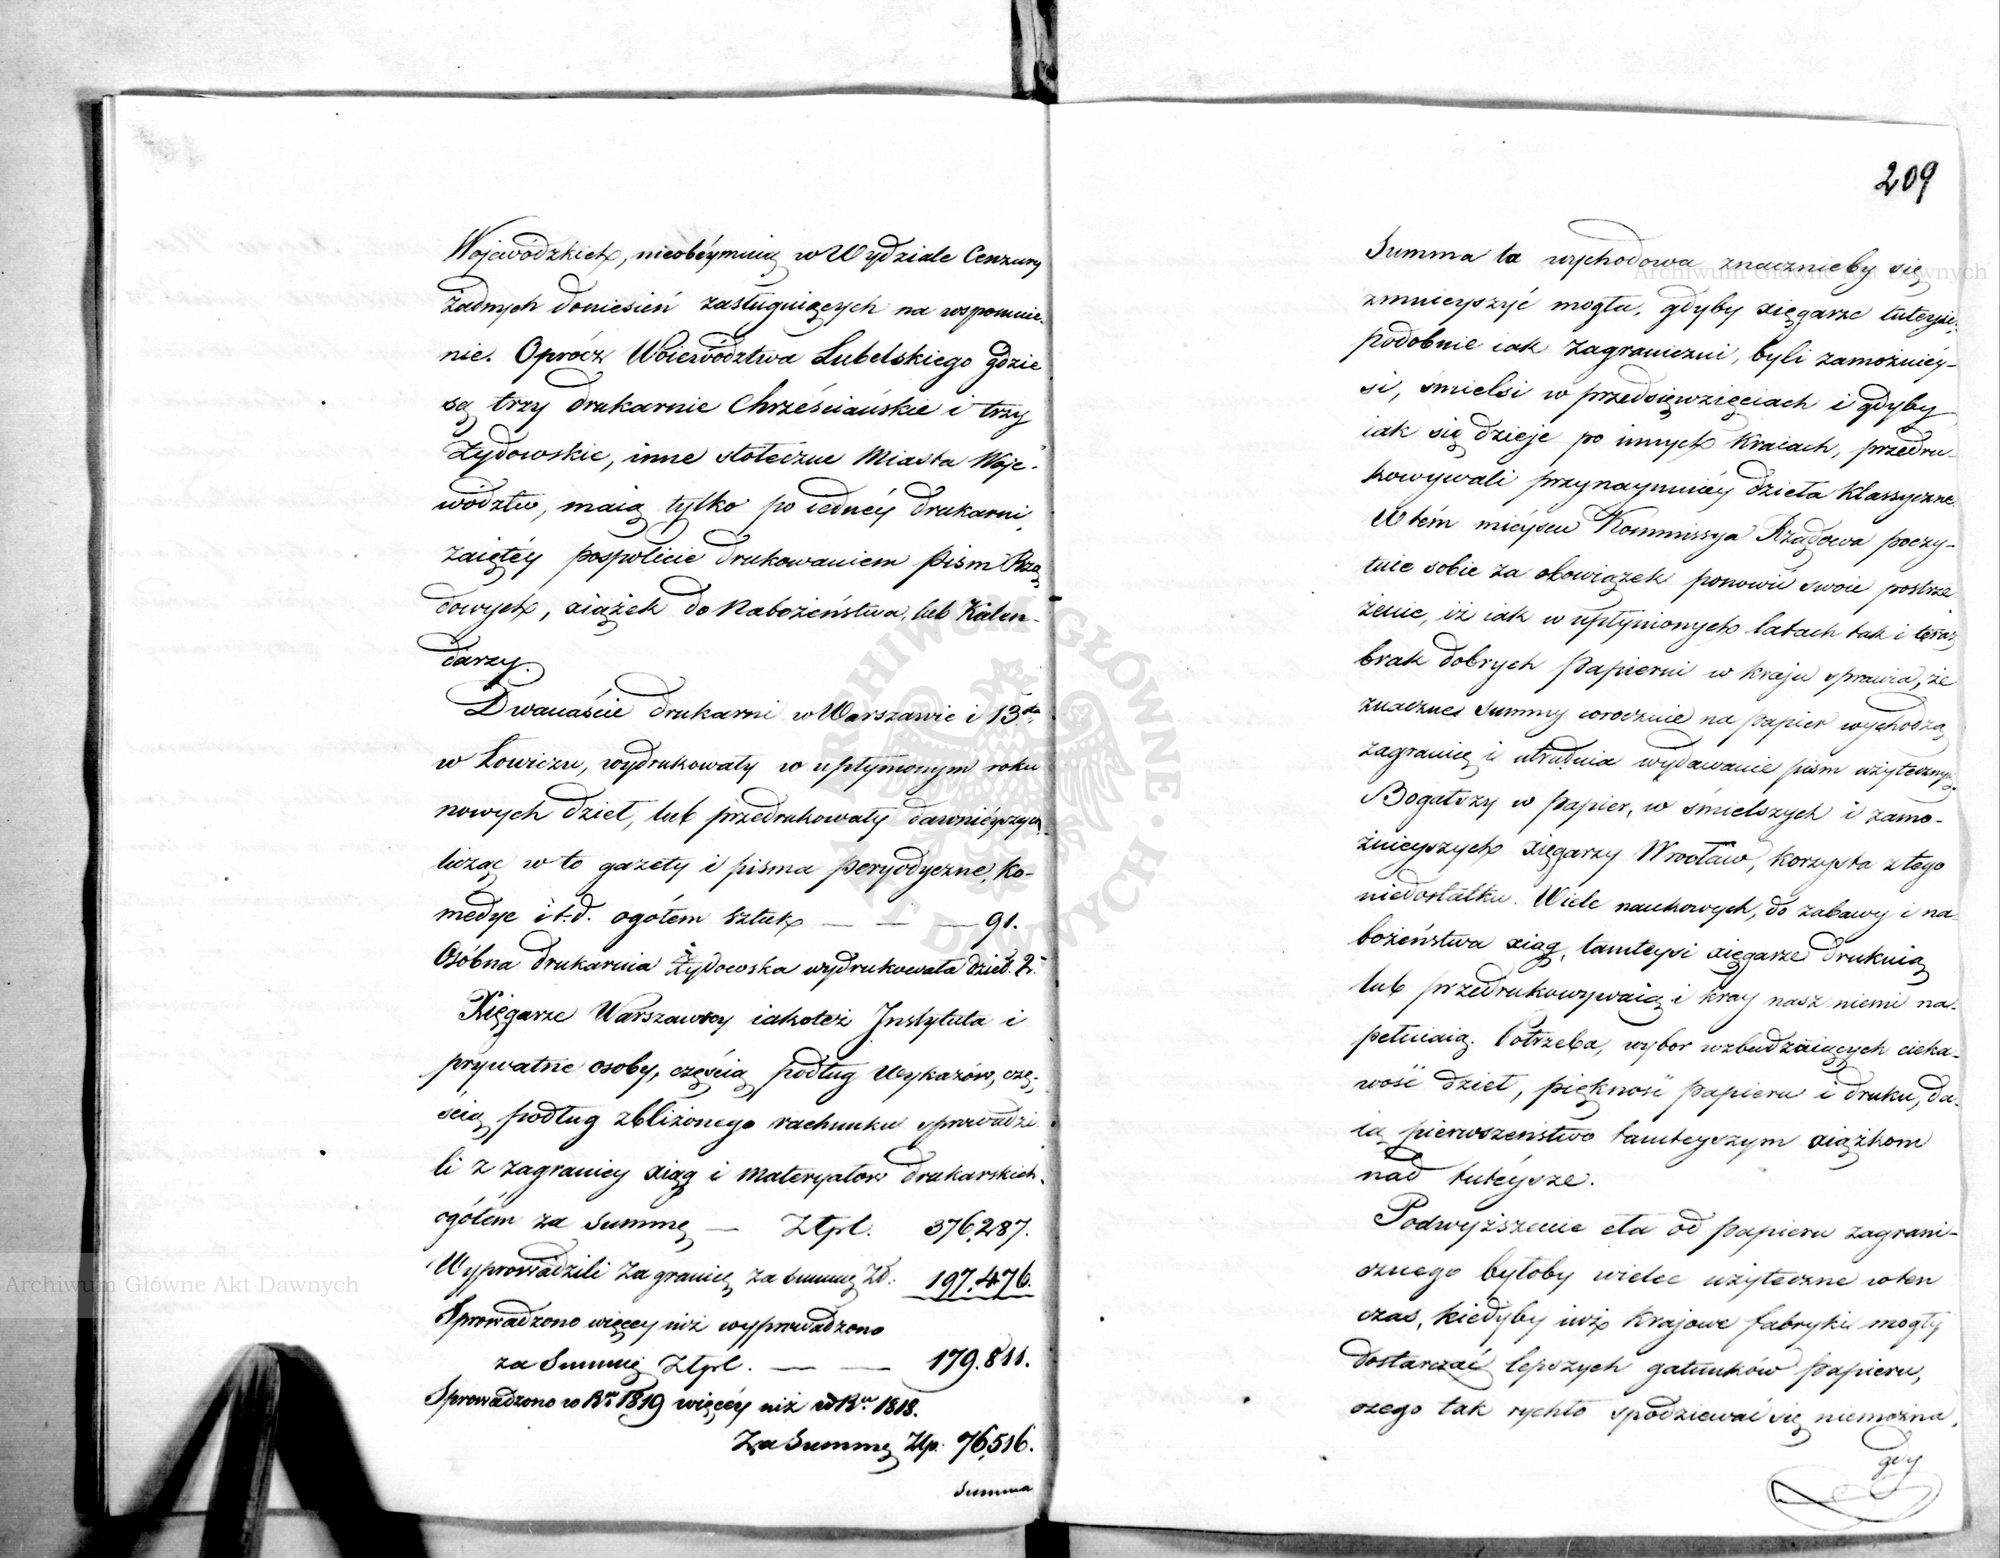 Wojewódzkich, nieobéymuią w Wydziale Cenzury
żadnych doniesień zasługuiących na wspomnie-
nie. Oprócz Woiewództwa Lubelskiego gdzie
są trzy drukarnie Chrześciańskie i trzy
Żydowskie, inne stołeczne Miasta Woje-
wództw, maią tylko po iednéy drukarni,
zaiętéy pospolicie drukowaniem Pism Rzą
dowych, xiążek do Nabożeństwa, lub Kalen-
darzy.
Dwanaście drukarni w Warszawie i 13sta
w Łowiczu, wydrukowały w upłynionym roku
nowych dzieł, lub przedrukowały dawniéyszych
licząc w to gazety i pisma peryodyczne, ko-
medye i t.d. ogółem sztuk — — — 91.
Osóbna drukarnia Żydowska wydrukowała dzieł. 2.
Xięgarze Warszawscy iakoteż Instytuta i
prywatne osoby, częścią podług Wykazów, czę-
ścią podług zbliżonego rachunku sprowadzi
li z zagranicy xiąg i Materyałow drukarskich.
ogółem za Summę — Złpl. 376,287.
Wyprowadzili Zagranicę za Summę Zł. 197.476.
Sprowadzono więcey niż wyprowadzono
za Summę Złpl. — — 179.811.
Sprowadzono w Ru 1819 więcéy niż w Ru 1818.
Za Summę Złp. 76,516.
Summa
209
Summa ta wychodowa znacznieby się
zmnieyszyć mogła, gdyby xięgarze tuteysi,
podobnie iak Zagraniczni, byli zamożniéy-
si, śmielsi w przedsięwzięciach i gdyby
iak się dzieje po innych Kraiach, przedru-
kowywali przynaymniéy dzieła Klassyczne.
W tém mieyscu Kommissya Rządowa poczy-
tuie sobie za obowiązek ponowić swoie postrze
żenie, iż iak w upłynionych latach tak i teraz
brak dobrych Papierni w kraju sprawia, że
znaczne Summy corocznie na papier wychodzą
zagranicę i utrudnia wydawanie pism użytecznych.
Bogatszy w papier, w śmielszych i zamo-
żnieyszych xięgarzy Wrocław, korzysta z tego
niedostatku. Wiele naukowych, do zabawy i na-
bożeństwa xiąg, tamteysi xięgarze drukuią
lub przedrukowywaią i kray nasz niemi na-
pełniaią. Potrzeba, wybor wzbudzaiących cieka-
wość dzieł, piękność papieru i druku, da-
ią pierwszeństwo tamteyszym xiążkom
nad tutéysze.
Podwyższenie cła od papieru zagrani-
cznego byłoby wielce użyteczne w ten
czas, kiedyby iuż Krajowe fabryki mogły
dostarczać lepszych gatunków papieru,
czego tak rychło spodziewać się niemożna,
gdy
Archiwum Główne Akt Dawnych
Archiwum Główne Akt Dawnych
ARCHIWUM GŁÓWNE AKT DAWNYCH